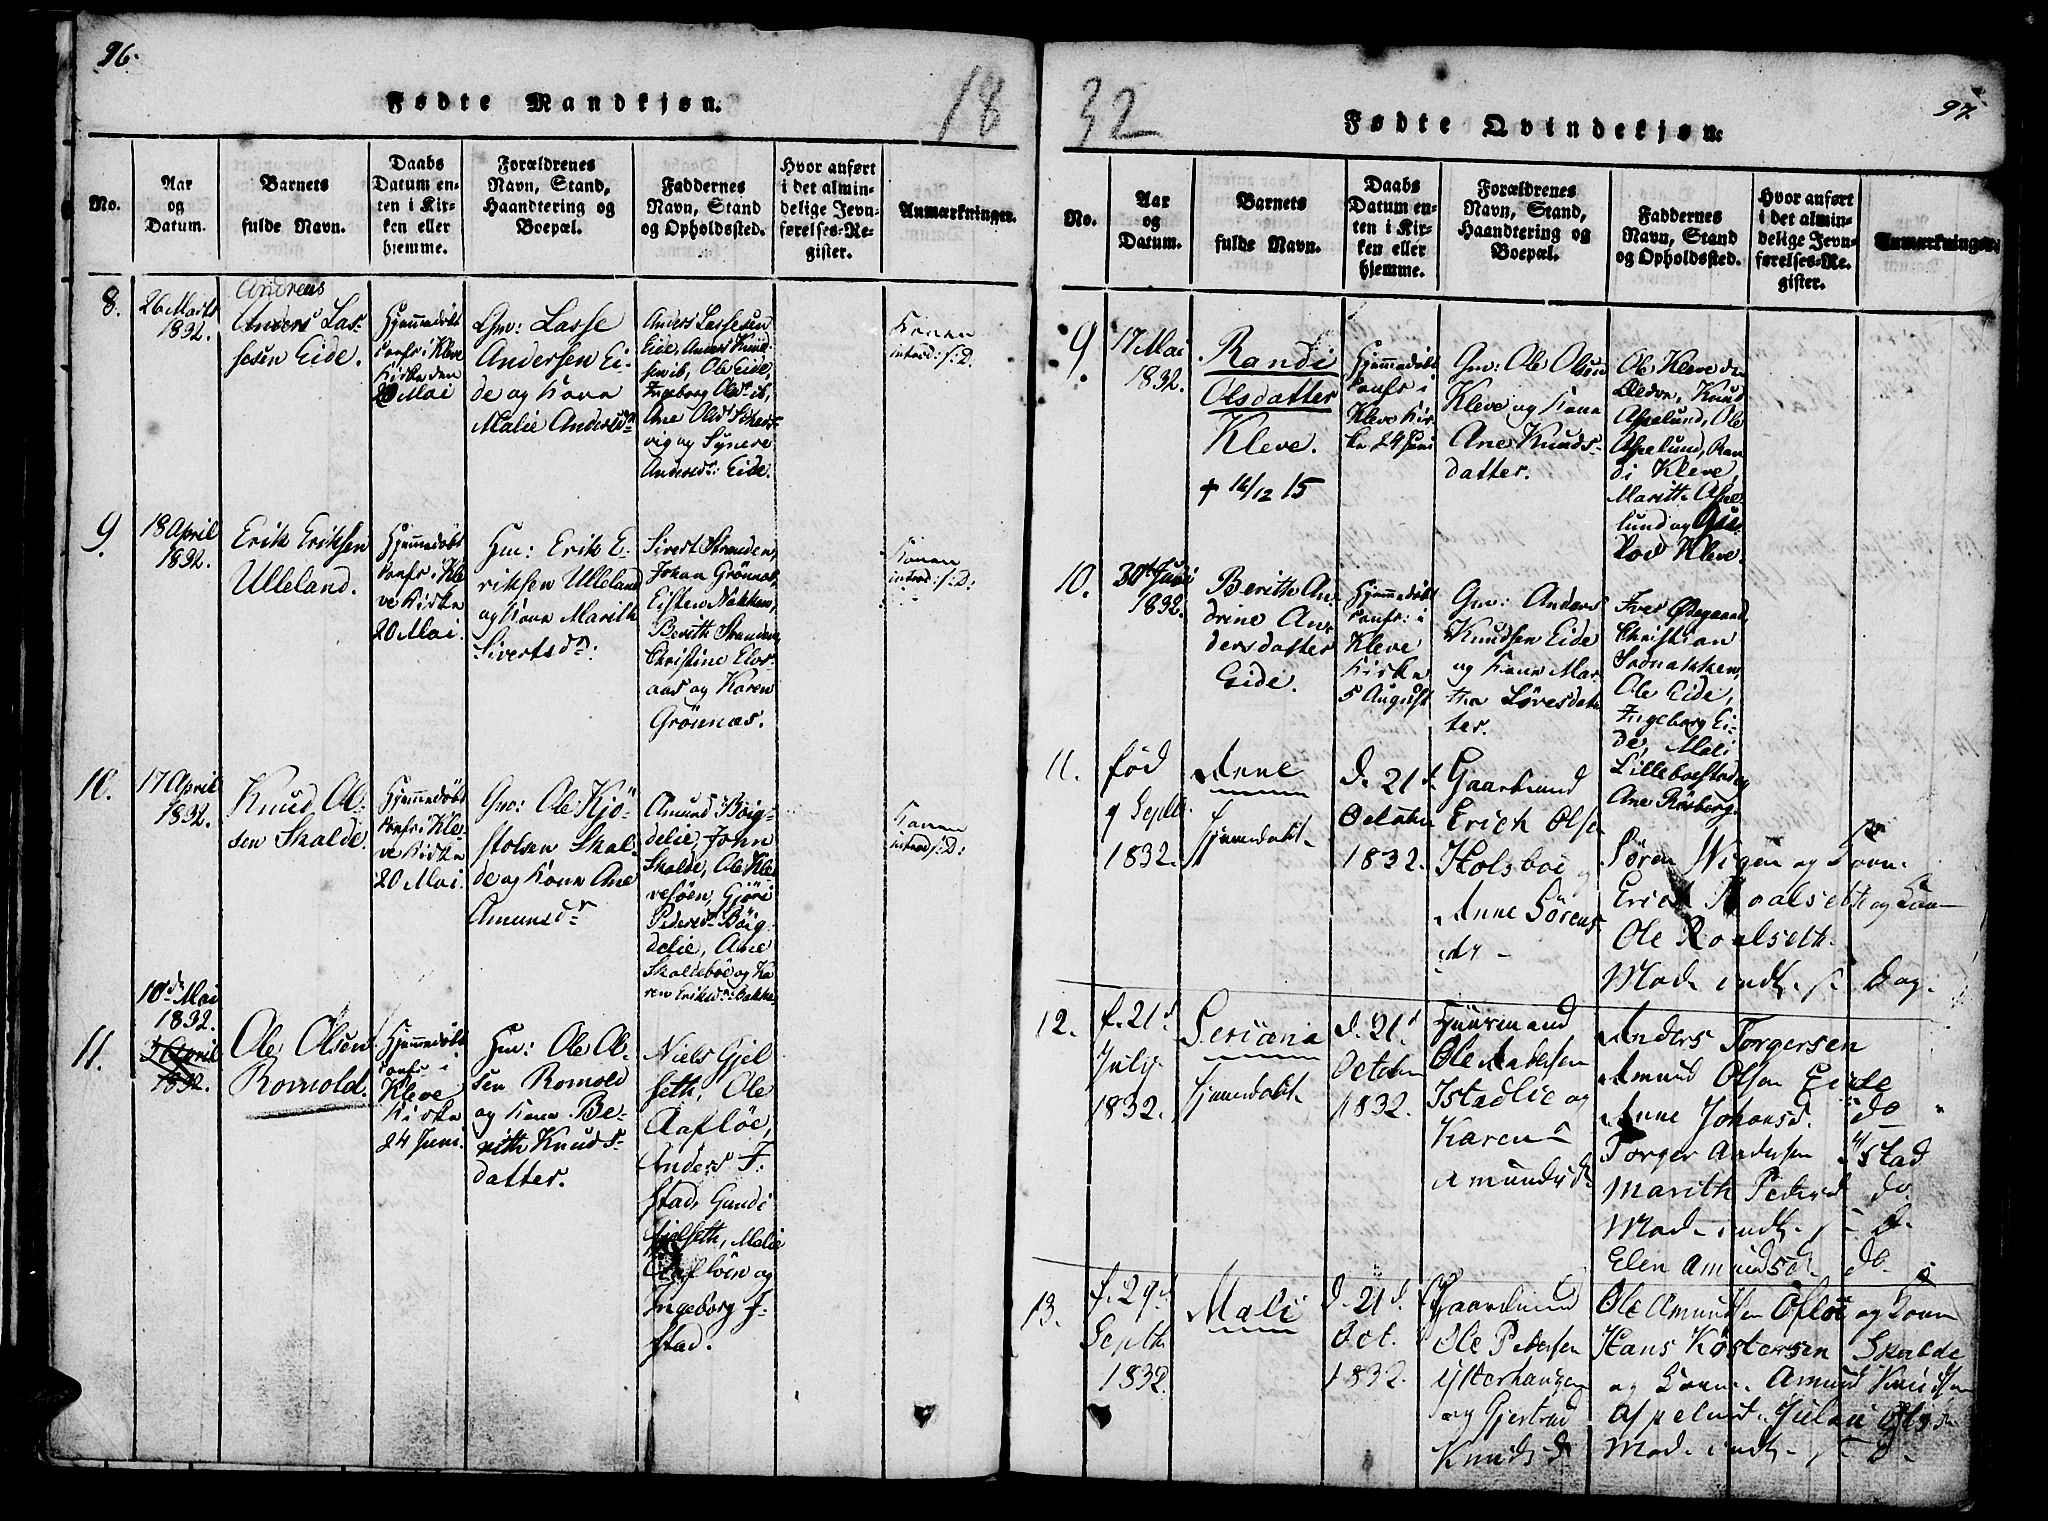 96.
Fødte Mandkjøn.
18
No.
Aar
og
Datum.
Barnets
fulde Navn.
Daabs
Datum en-
ten i Kir-
ken eller
hjemme.
Forældrenes
Navn, Stand,
Haandtering og
Boepæl.
Faddernes
Navn, Stand
og Opholdssted.
Hvor anført
i det almin-
delige Jevn-
førelses-Re-
gister.
Anmærkninger.
8.
26 Marts
1832.
Andreas
Anders Las-
sesen Eide.
Hjemmedöbt
confr. i Kleve
Kirke den
20 Mai
Gm: Lasse
Andersen Ei-
de og Kone
Malie Andersdr
Anders Lassesen
Eide, Anders Knud-
sen ib, Ole Eide,
Ingeborg Olsdr ib,
Ane Olsdr
vig og Synere
Andersdr: Eide.
Konen
introd: s: D:
9.
18 April
1832.
Erik Eriksen
Ulleland.
Hjemmedöbt
confr. i Kle-
ve Kirke
20 Mai.
Hm: Erik E-
riksen Ulleland
og Kone Marith
Sivertsdr:
Sivert Stranden,
Johan Grönnæs,
Eisten Nakken,
Berith Stranden,
Christine Elvs-
aas og Karen
Grönnæs.
Konen
introd: s: D:
10.
17 April
1832.
Knud Ol-
sen Skalde.
Hjemmedöbt
confr. i Kle-
ve Kirke
20 Mai.
Gm: Ole Kjö-
stolsen Skal-
de og Kone Ane
Amundsdr
Amund Böig-
delie, John
Skalde, Ole Kle-
vesöen, Gjöri
Pedersdr Böig-
delie, Ane
Skaldeböe og Ka-
ren Eriksdr: Bakke.
Konen
introd: s: D:
11.
10de Mai
1832.
3 April
1832.
Ole Olsen
Romold.
Hjemmedöbt
confr. i
Kleve
Kirke
24 Juni.
Hm: Ole Ol-
sen Romold
og Kone Be-
rith Knuds-
datter.
Niels Gjel-
seth, Ole
Aaflöe,
Anders I-
stad, Gundi
Gjelseth, Malie
Aaflöen og
Ingeborg I-
stad.
32
97.
Fødte Qvindekjøn.
No.
Aar
og
Datum.
Barnets
fulde Navn.
Daabs
Datum en-
ten i Kir-
ken eller
hjemme.
Forældrenes
Navn, Stand,
Haandtering og
Boepæl.
Faddernes
Navn, Stand
og Opholdssted.
Hvor anført
i det almin-
delige Jevn-
førelses-Re-
gister.
Anmærkninger.
9.
17 Mai
1832.
Randi
Olsdatter
Kleve.
+ 16/12 15
Hjemmedöbt
confr. i
Kleve Kir-
ke 24 Juni
Gm: Ole Olsen
Kleve og Kone
Ane Knuds-
datter.
Ole Kleve den
Ældre, Knud
Aspelund, Ole
Aspelund, Ran-
di Kleve,
Marith Aspe-
lund og
Kleve.
10.
30te Juni
1832.
Berith An-
drine An-
dersdatter
Eide.
Hjemmedöbt
confr: i
Kleve
Kirke
5 August
Gm: Anders
Knudsen Eide
og Kone Mar-
tha Sörensdat-
ter.
Iver Ødegaard,
Christian
Sadnakken,
Ole Eide,
Ingeborg Ei-
de, Mali
Lilleboestad og
Ane Risberg.
11.
fød
9 Septbr.
1832.
Anne
hjemdøbt
D. 21de
October
1832.
Gaardmand
Erich Olsen
Holsböe og
Anne Sörens-
dr
Sören Wigen og Kone
Erich Roalseth og Kone
Ole Roalseth.
Mod. indt. s. Dag.
12.
f. 21de
July
1832.
Seriana
hjemdøbt
D. 21de
October
1832.
Huusmand
Ole Andersen
Istadlie og
Karen
Amundsdr
Anders Torgersen
Amund Olsen Eide
Anne Johansd. do
Torger Andersen Istad
Marith Pedersd do.
Mod. indt. s. D.
Elen Amundsdr do.
13.
f. 29de
Septbr
1832.
Mali
D. 21de
Oct.
1832.
Gaardmand
Ole Pedersen
Ytterhaugen
og Gjertrud
Knudsdr
Ole Amundsen Afløe og Kone
Hans Köstersen Skalde
og Kone. Amund Knudsen
Aspelund. Juliane Olsdr
Mod. indt. s. D.